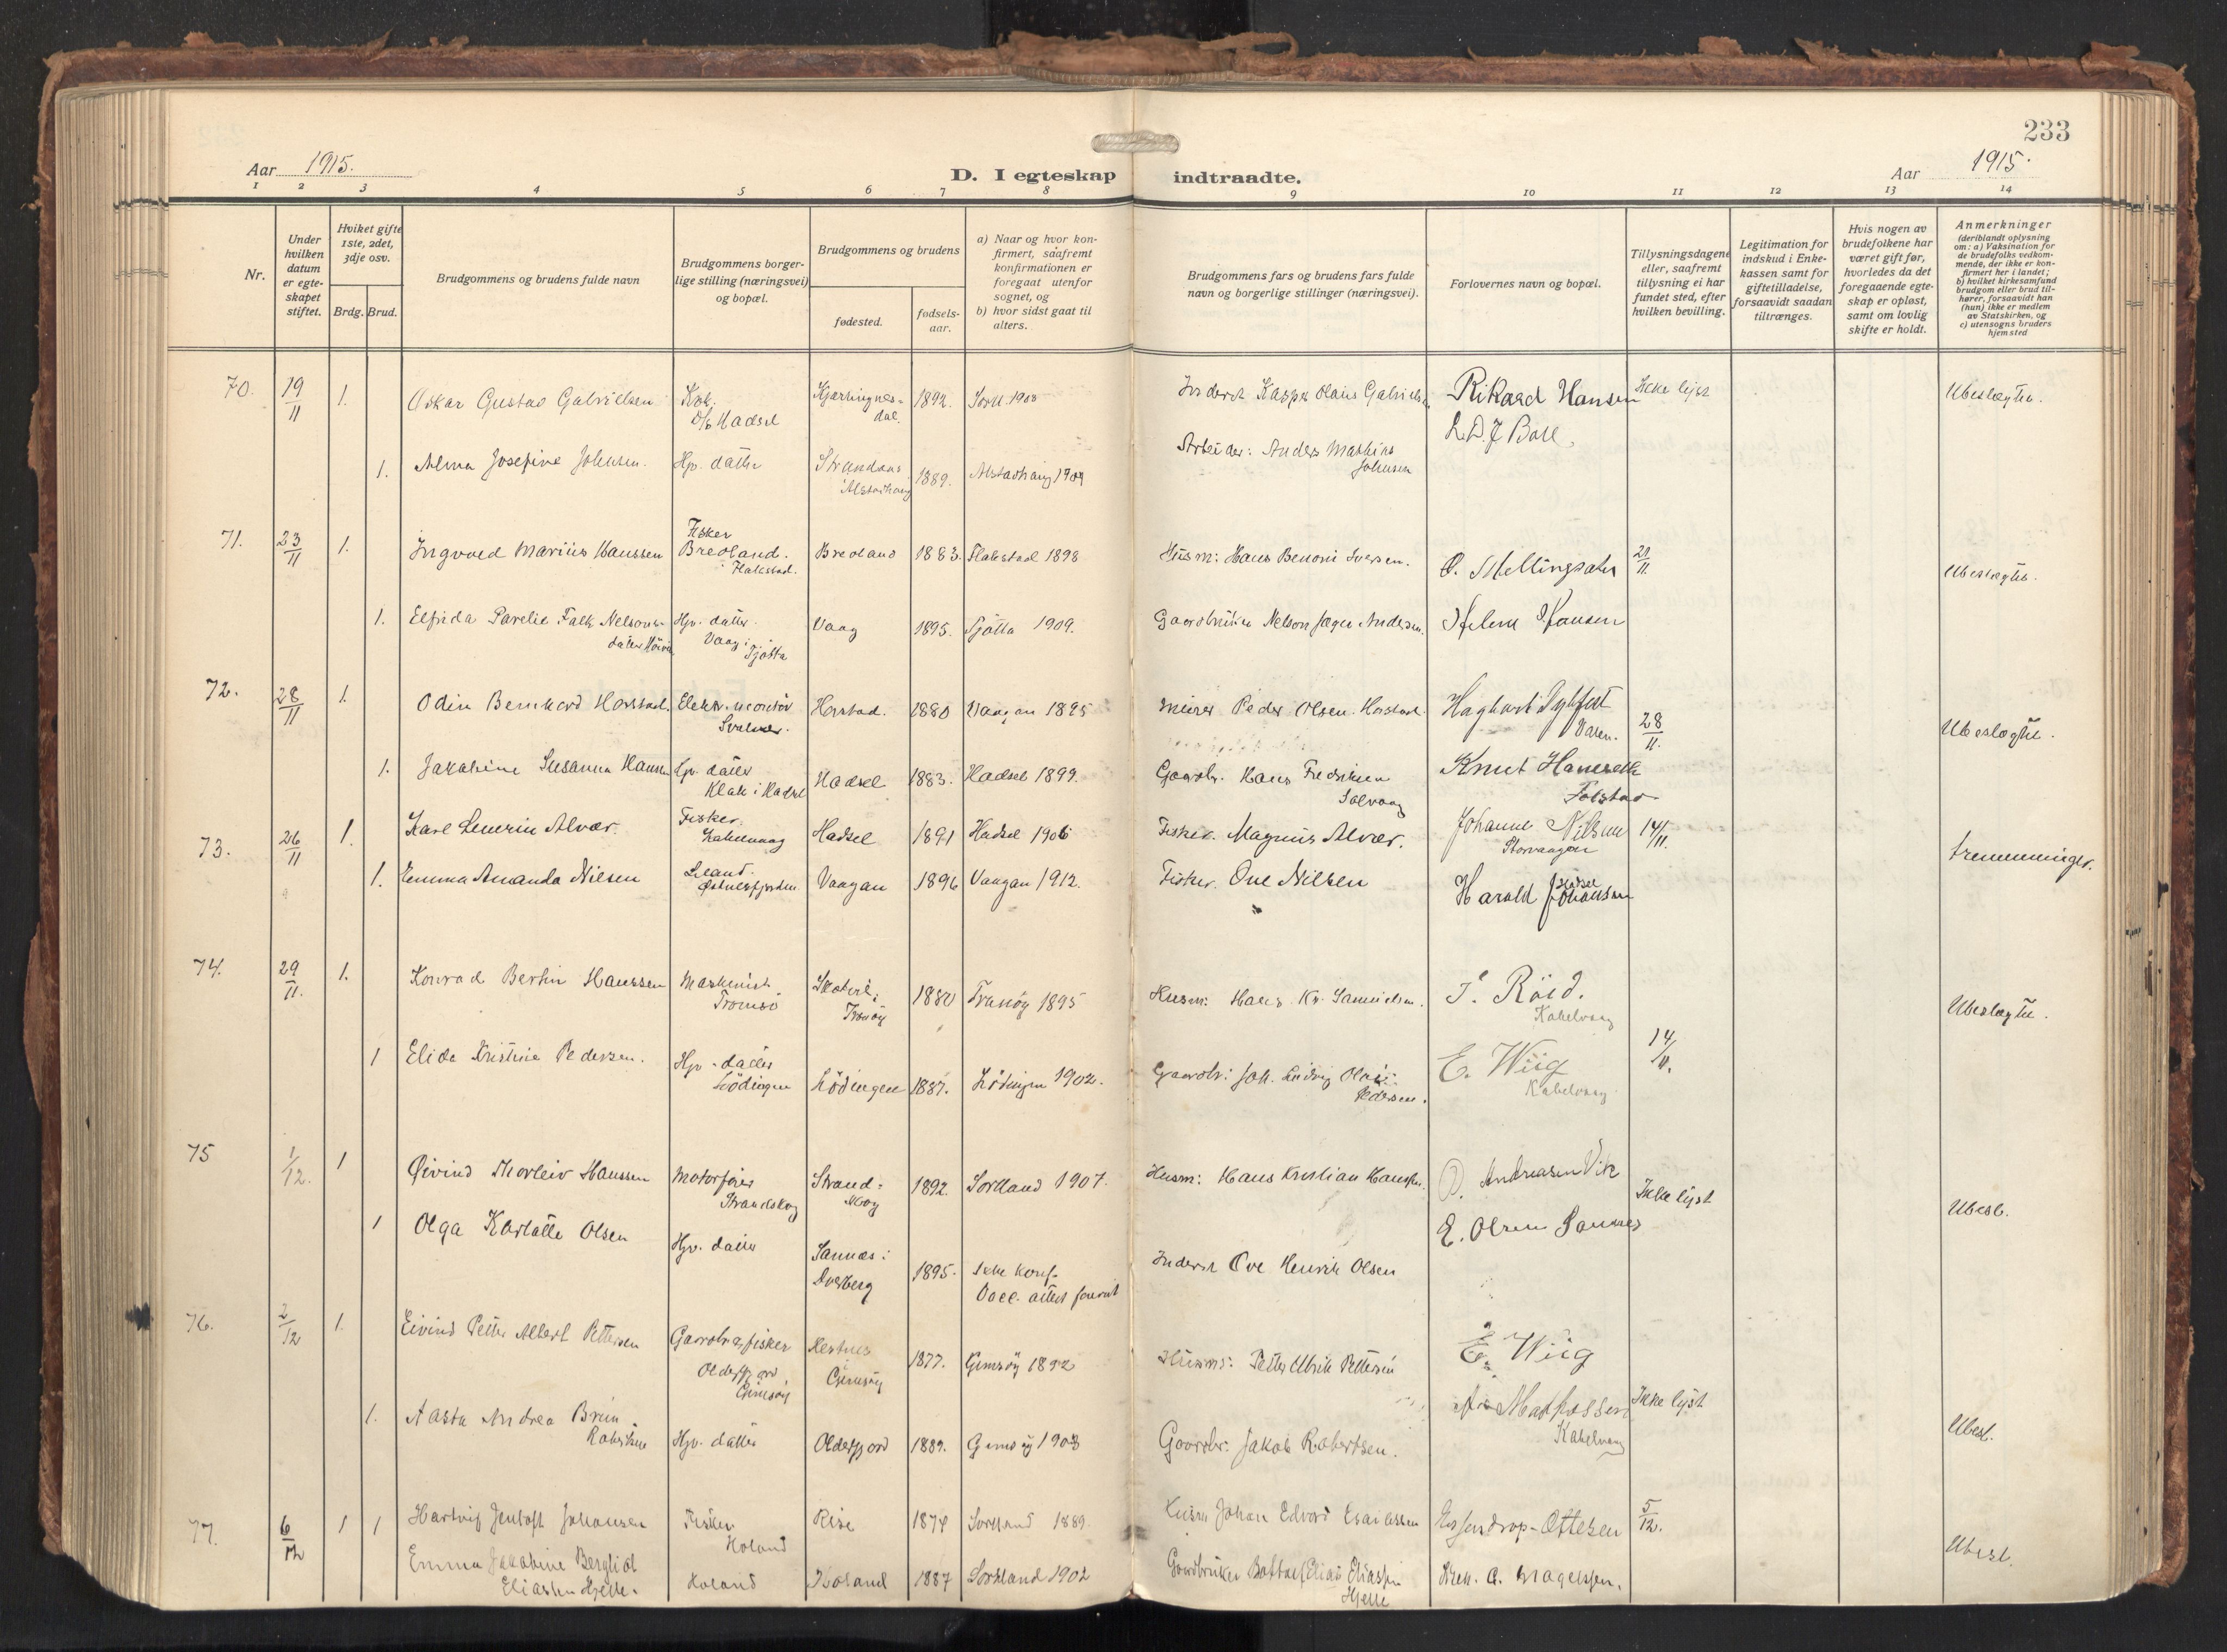 233
Aar 1915.
D. I egteskap indtraadte.
Aar 1915.
1 2 3 4 5 6 7 8 9 10 11 12 13 14
Nr.
Under hvilken datum er egte-skapet stiftet.
Hviket gifte 1ste, 2det, 3dje osv.
Brdg. Brud.
Brudgommens og brudens fulde navn
Brudgommens borger-lige stilling (næringsvei) og bopæl.
Brudgommens og brudens
fødested.
fødsels-aar.
a) Naar og hvor kon-firmert, såafremt konfirmationen er foregaat utenfor sognet, og
b) hvor sidst gaat til alters.
Brudgommens fars og brudens fars fulde navn og borgerlige stillinger (næringsvei).
Forlovernes navn og bopæl.
Tillysningsdagene eller, saafremt tillysning ei har fundet sted, efter hvilken bevilling.
Legitimation for indskud i Enke-kassen samt for giftetilladelse, forsaavidt saadan tiltrænges.
Hvis nogen av brudefolkene har været gift før, hvorledes da det foregaaende egte-skap er opløst, samt om lovlig skifte er holdt.
Anmerkninger (deriblandt oplysning om: a) Vaksination for de brudefolks vedkom-mende, der ikke er kon-firmert her i landet; b) hvilket kirkesamfund brudgom eller brud til-hører, forsaavidt han (hun) ikke er medlem av Statskirken, og c) utensogns bruders hjemsted
70. 19/11 1. Oskar Gustav Gabrielsen Kok. D/S Hadsel 1892. 1908 Inderst Kasper Olaus Gabrielsen Rikard Hansen Ikke lyst Ubeslægtet.
1. Alma Josefine Johnsen. Hjv. datter Alstadhaug 1889. Alstadhaug 1904 Arbeider: Anders Mathias Johnsen
71. 23/11 1. Ingvald Marius Hanssen Fisker Bredland. Flakstad. Bredland 1883. Flakstad 1898 Husm: Hans Benoni Iversen. 21/11. Ubeslægtet.
1. Elfrida Parelie Falk Nelsons-datter Hjv. datter. Vaag i Tjøtta Vaag 1895. Tjøtta 1909. Gaardbruker Nelson Andersen. Helene Hansen
72. 28/11 1. Odin Bernhard Harstad. Elektr. montør Svolvær. Harstad. 1880 Vaagan 1895 Murer Peder Olsen Harstad Hagbart 28/11. Ubeslægtet.
1. Jakobine Susanna Hansen Hjv. datter Klak i Hadsel Hadsel 1883. Hadsel 1899. Gaardbr. Hans Fredriksen Solvaag Knut Hamseth
73. 26/11 1. Karl Severin Alvær. Fisker. Kabelvaag Hadsel 1891 Hadsel 1906 Fisker. Magnus Alvær. Johanne Nilsen Storvaagan 14/11. tremenninger.
1. Emma Amanda Nilsen Østnesfjorden Vaagan 1896 Vaagan 1912. Fisker. One Nilsen Harald Johansen
74. 29/11. 1. Konrad Bertin Hanssen Maskinist Tromsø Tranøy 1880 Tranøy 1895 Husm: Hans Kr. Samuelsen. Kabelvaag Ubeslægtet.
1 Elida Kristine Pedersen. Hjv. datter Lødingen Lødingen 1887. Lødingen 1902. Gaardbr: Joh. Ludvig Olai Pedersen. E. Wiig Kabelvaag 14/11.
75 1/12. 1 Øivind Thorleiv Hanssen Motorfører Strandskog Strand-skog 1892. Sortland 1907. Husm: Hans Kristian Hanssen. Andreasen Vik Ikke lyst Ubesl.
1 Olga Karlotte Olsen Hjv. datter Sannes i Dverberg 1895. Ikke konf. Vacc. attest forevist Inderst Ove Henrik Olsen E. Olsen Sannes
76. 2/12 1. Eivind Petter Albert Pettersen Gaardbr. og fisker Olderfjord Gimsøy Gimsøy 1877. Gimsøy 1892 Husm: Petter Ulrik Pettersen E. Wiig Ikke lyst Ubesl.
1. Aasta Andrea Brun Robertsen Hjv. datter Olderfjord 1889. Gimsøy 1903 Gaardbr: Jakob Robertsen. Kabelvaag
77. 6/12 1 1 Hartvig Jentoft Johansen Fisker Holand Rise 1874 Sortland 1889. Husm Johan Edvard Esaiassen Ottesen 5/12. Ubesl.
Emma Jakobine Bergliot Eliassen Hjelle. Holand Holand 1887 Sortland 1902 Gaardbruker Eliassen Hjelle A. Magelssen.